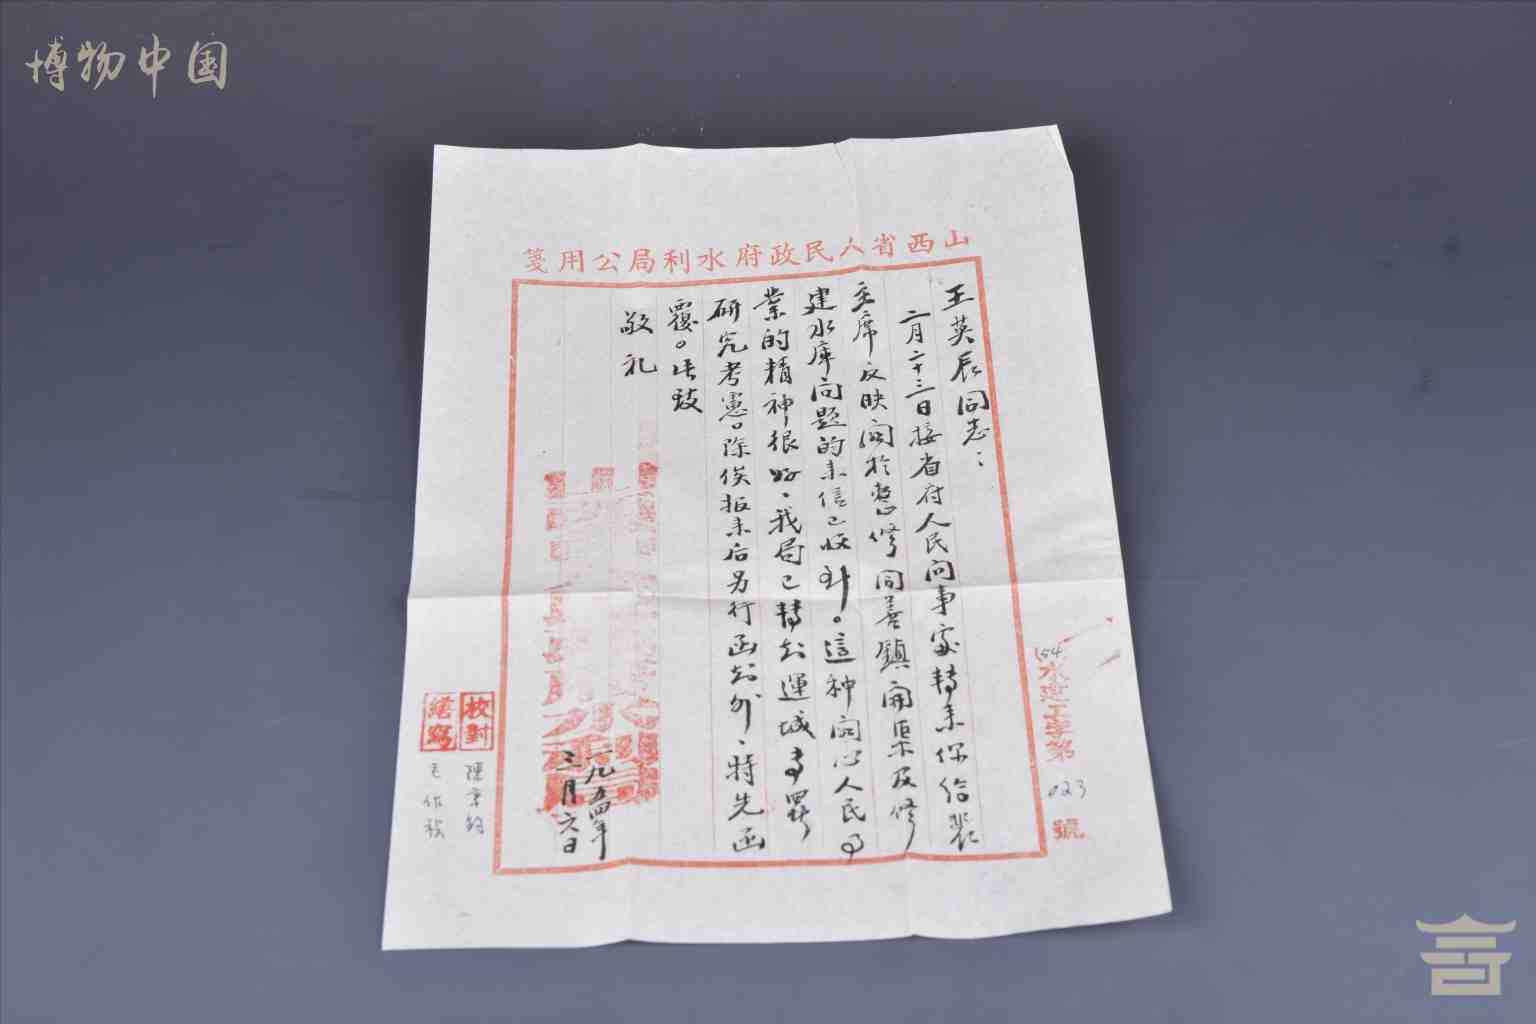 博物中国
山西省人民政府水利局公用箋
王英辰同志：
二月二十三日接省府人民问事處轉来你给裴
主席反映関於整修同善鎮開渠及修
建水库问题的来信已收到。這种関心人民事
業的精神很好、我局已轉知運城专署
研究考慮。除俟报来后另行函知外、特先函
覆。此致
敬礼
一九五四年
三月六日
(54)水建工字第023號
校對
繕寫